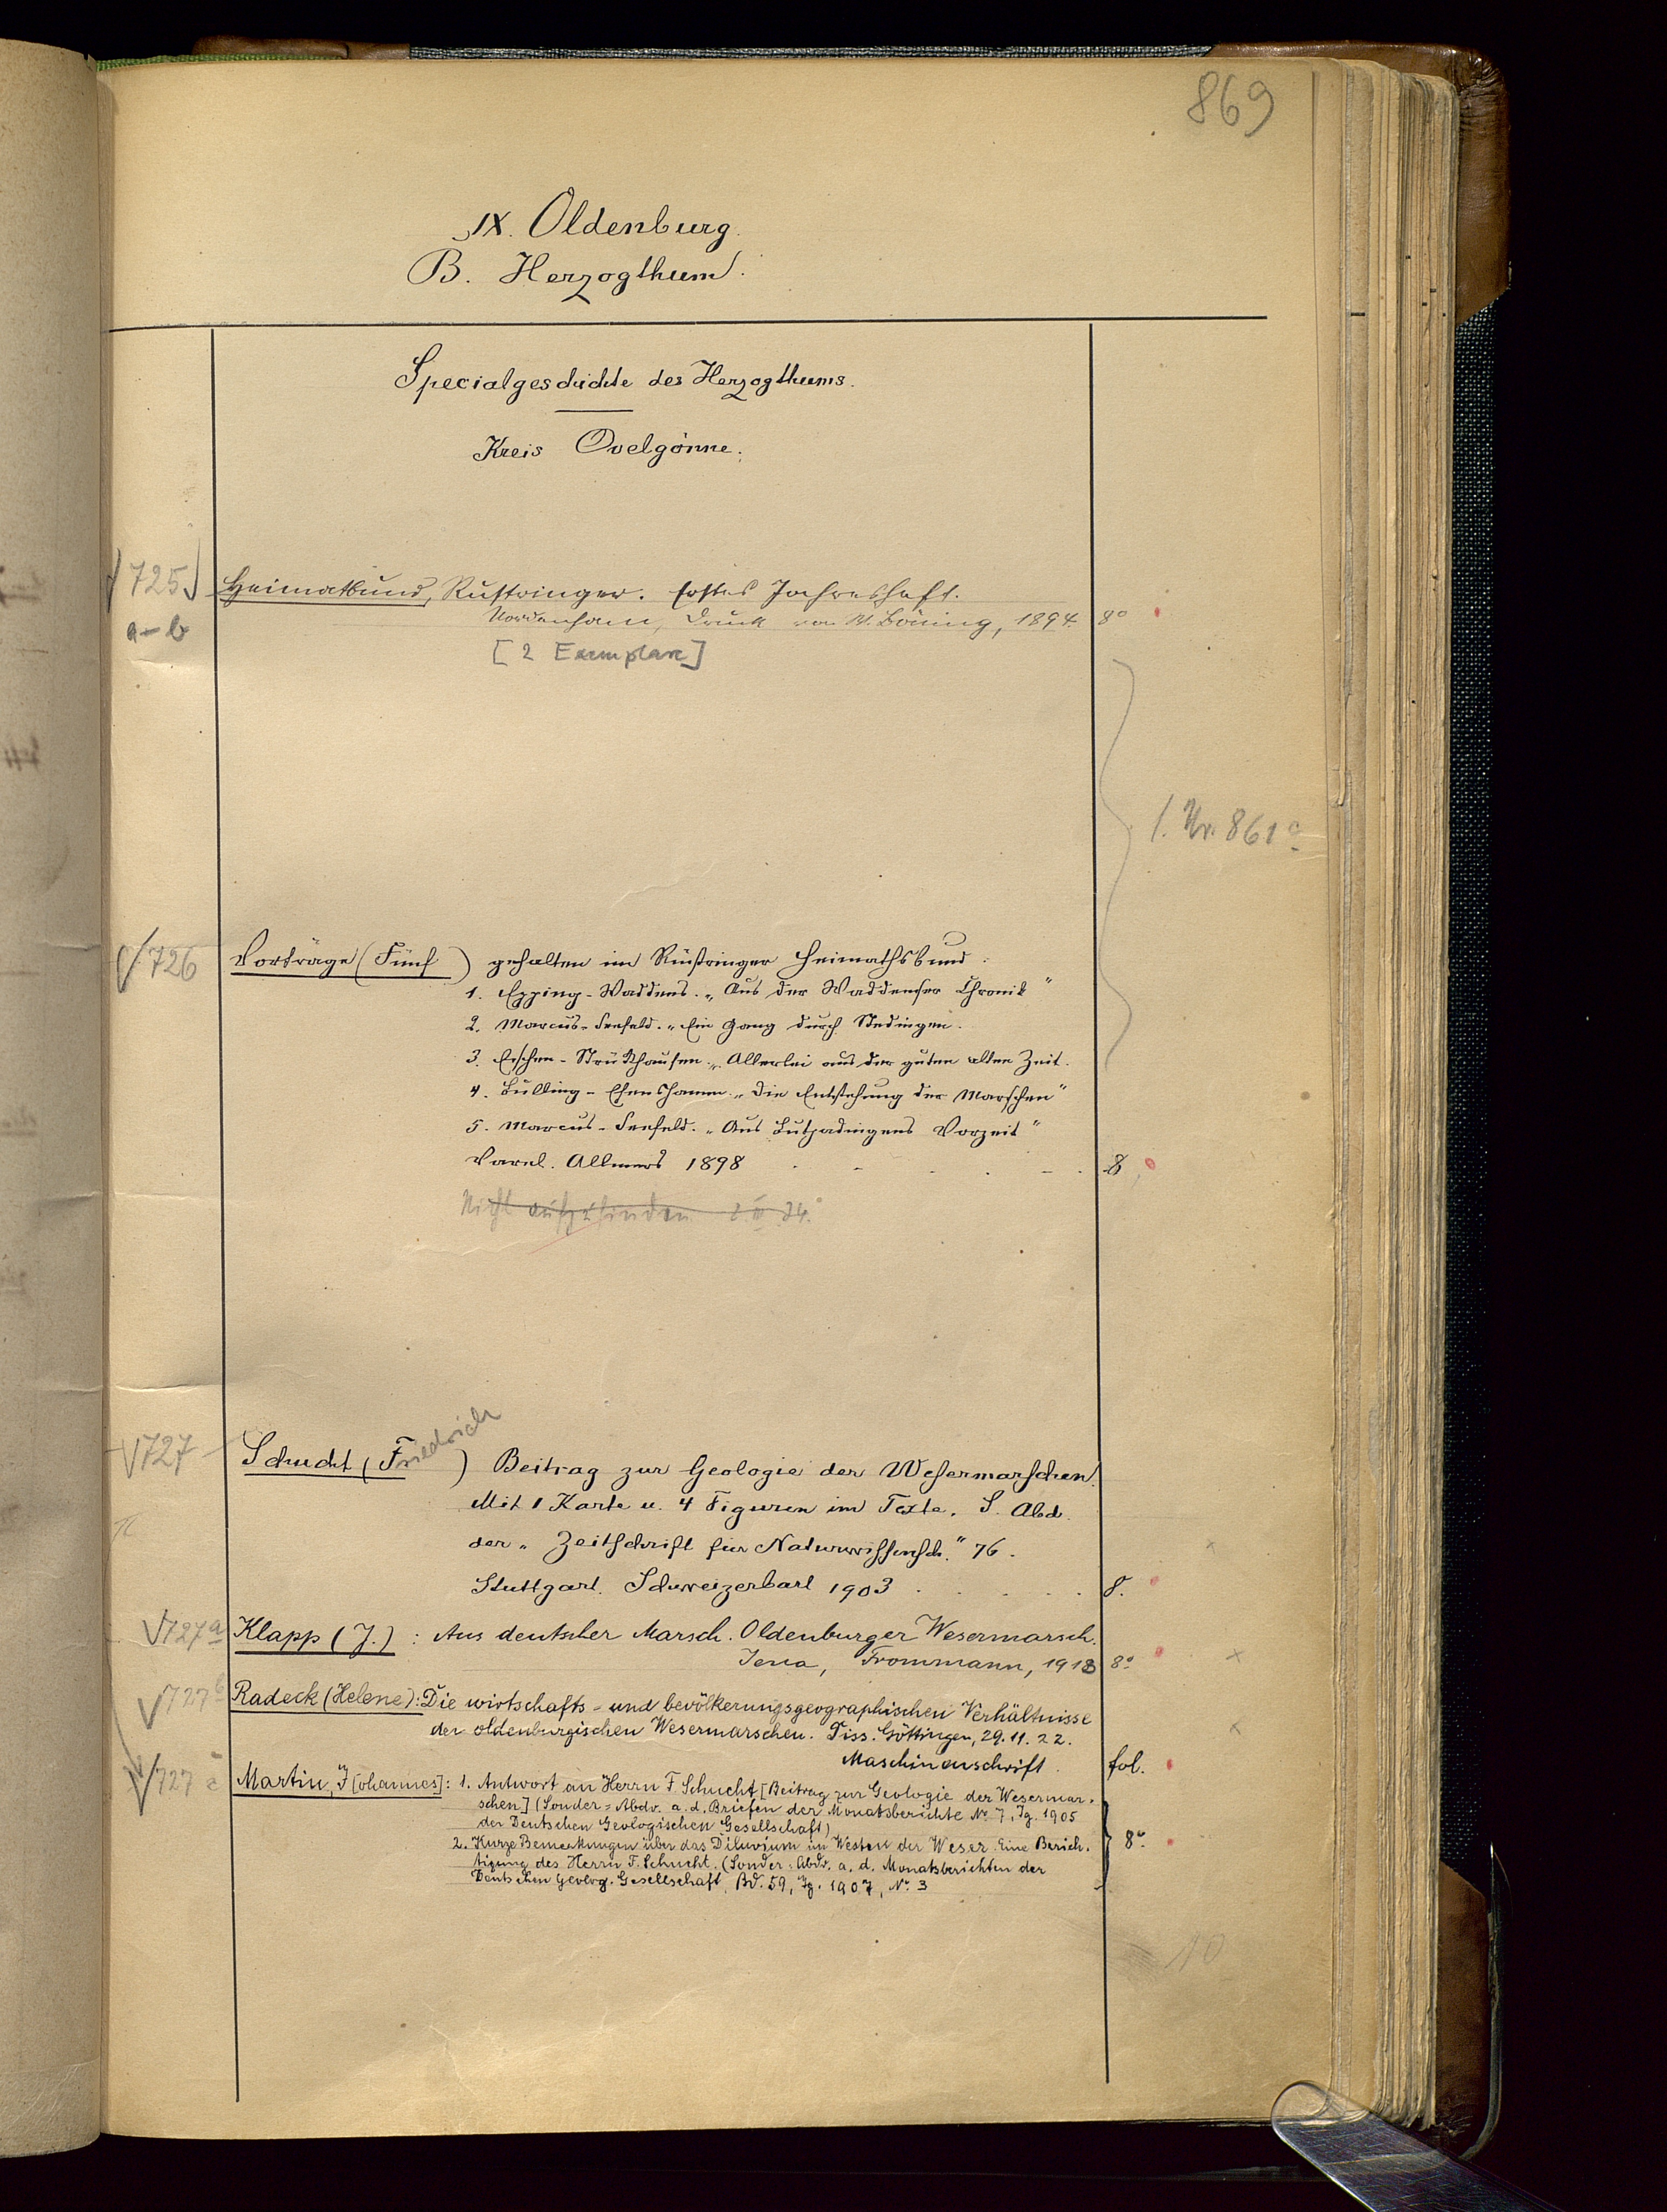 869
IX. Oldenburg.
B. Herzogthum.
Specialgeschichte des Herzogthums.
Kreis Ovelgönne.
725
a-b
Heimatbund, Rustringer. Erstes Jahresheft.
Nordenham, Druck von W. Böning, 1894. 8°
[2 Exemplare]
s. Nr. 861 c
726 Vorträge (Fünf) gehalten im Rüstringer Heimathsbund:
1. Epping-Waddens. „Aus der Waddenser Chronik"
2. Marcus-Seefeld. „Ein Gang durch Stedingen.
3. Eschen-Strückhausen. „Allerlei aus der guten alten Zeit.
4. Bulling-Esenshamm. „Die Entstehung der Marschen"
5. Marcus-Seefeld. „Aus Butjadingens Vorzeit"
Varel. Allmers 1898 8
Nicht aufzufinden
727 Schucht (Friedrich) Beitrag zur Geologie der Wesermarschen.
Mit 1 Karte u. 4 Figuren im Texte. S. Abd.
der „Zeitschrift für Naturwissensch." 76.
Stuttgart. Schweizerbart 1903 8.
727a Klapp (J.): Aus deutscher Marsch. Oldenburger Wesermarsch.
Jena, Frommann, 1913 8°
727b Radeck (Helene): Die wirtschafts- und bevölkerungsgeographischen Verhältnisse
der oldenburgischen Wesermarschen. Diss. Göttingen, 29.11.22.
Maschinenschrift. fol.
727c Martin, J[ohannes]: 1. Antwort an Herrn F. Schucht [Beitrag zur Geologie der Wesermar-
schen] (Sonder-Abdr. a. d. Briefen der Monatsberichte Nr. 7, Jg. 1905
der Deutschen Geologischen Gesellschaft)
2. Kurze Bemerkungen über das Diluvium im Westen der Weser. Eine Berich- 8°
tigung des Herrn F. Schucht. (Sonder-Abdr. a. d. Monatsberichten der
Deutschen Geolog. Gesellschaft, Bd. 59, Jg. 1907, Nr. 3
10